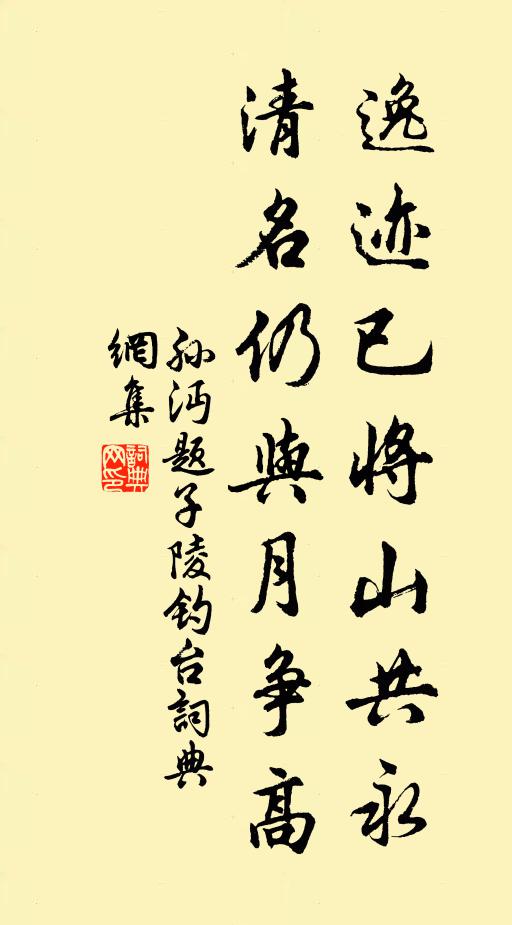 逸迹已将山共永
清名仍與月争高
孙沔题子陵钓台詞典
網集
詞典網印